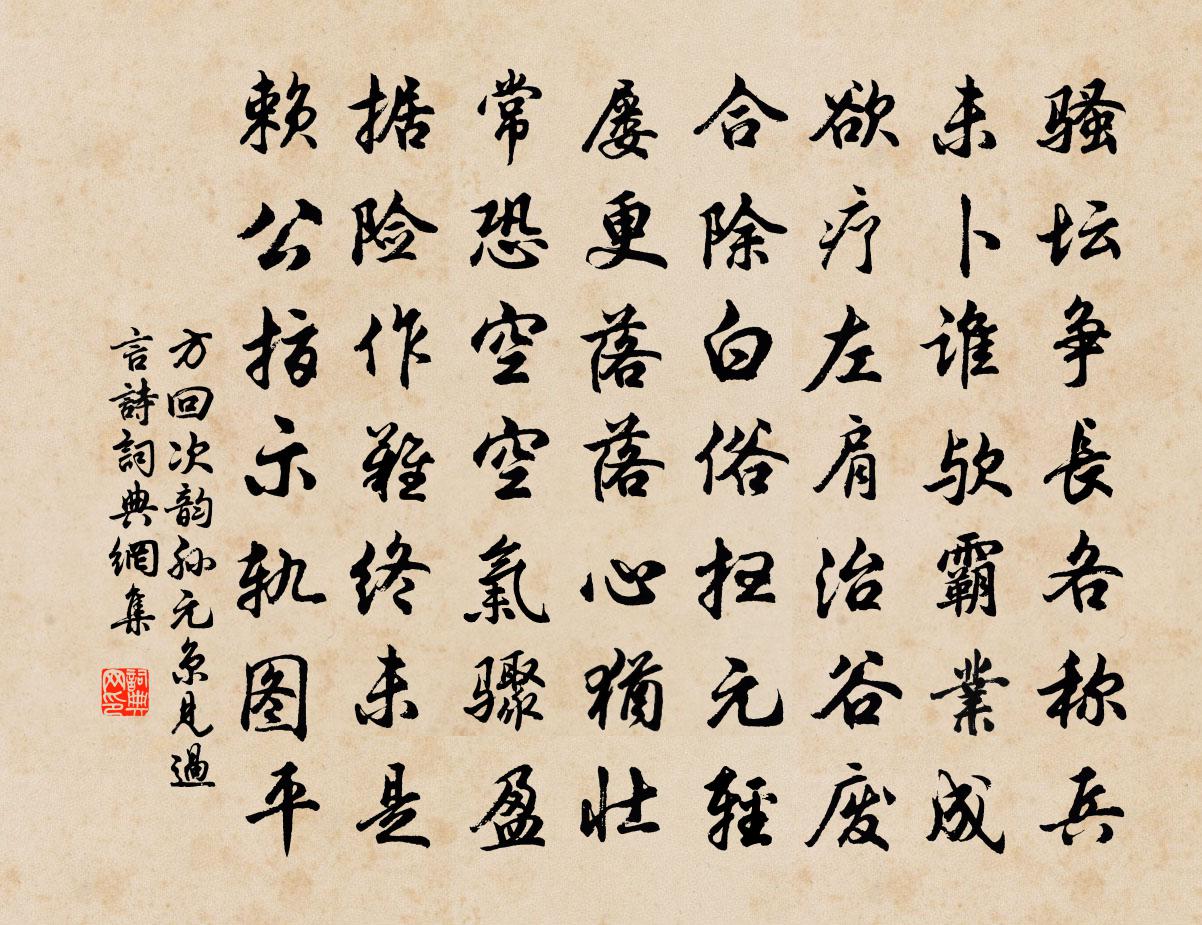 骚坛争長各称兵
未卜谁欤霸業成
欲疗左肩治谷废
合除白俗扫元輕
屡更落落心猶壮
常恐空空氣骤盈
据险作難终未是
赖公指示轨图平
方回次韵孙元京见過
言詩詞典網集
詞典网印